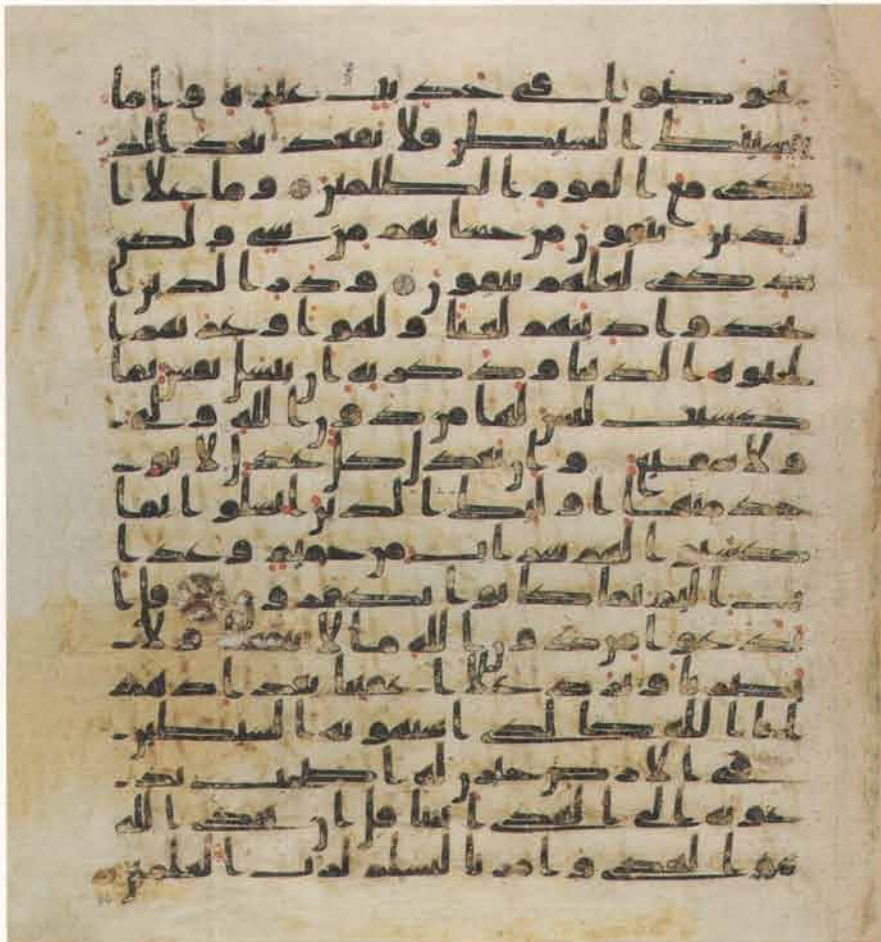 يخوضوا فى حديث غيره واما
ينسينك الشيطن فلا تقعد بعد الذ
كرى مع القوم الظلمين وما على ا
لذين يتقون من حسابهم من شى ولكن
ذكرى لعلهم يتقون وذر الذين ا
تخذوا دينهم لعبا ولهوا وغرتهم ا
لحيوة الدنيا وذكر به ان تبسل نفس بما
كسبت ليس لها من دون الله ولى
ولا شفيع وان تعدل كل عدل لا يو
خذ منها اولئك الذين ابسلوا بما
كسبوا لهم شراب من حميم وعذا
ب اليم بما كانوا يكفرون قل ا
ندعوا من دون الله ما لا ينفعنا ولا
يضرنا ونرد على اعقبنا بعد اذ هد
ينا الله كالذى استهوته الشيطين
فى الارض حيرن له اصحب يد
عونه الى الهدى ائتنا قل ان هدى الله
هو الهدى وامرنا لنسلم لرب العلمين